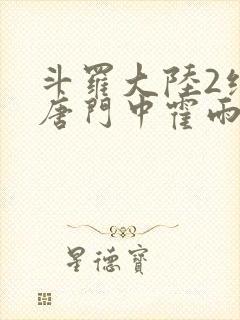 斗羅大陸2
唐門中霍雨
星德寶